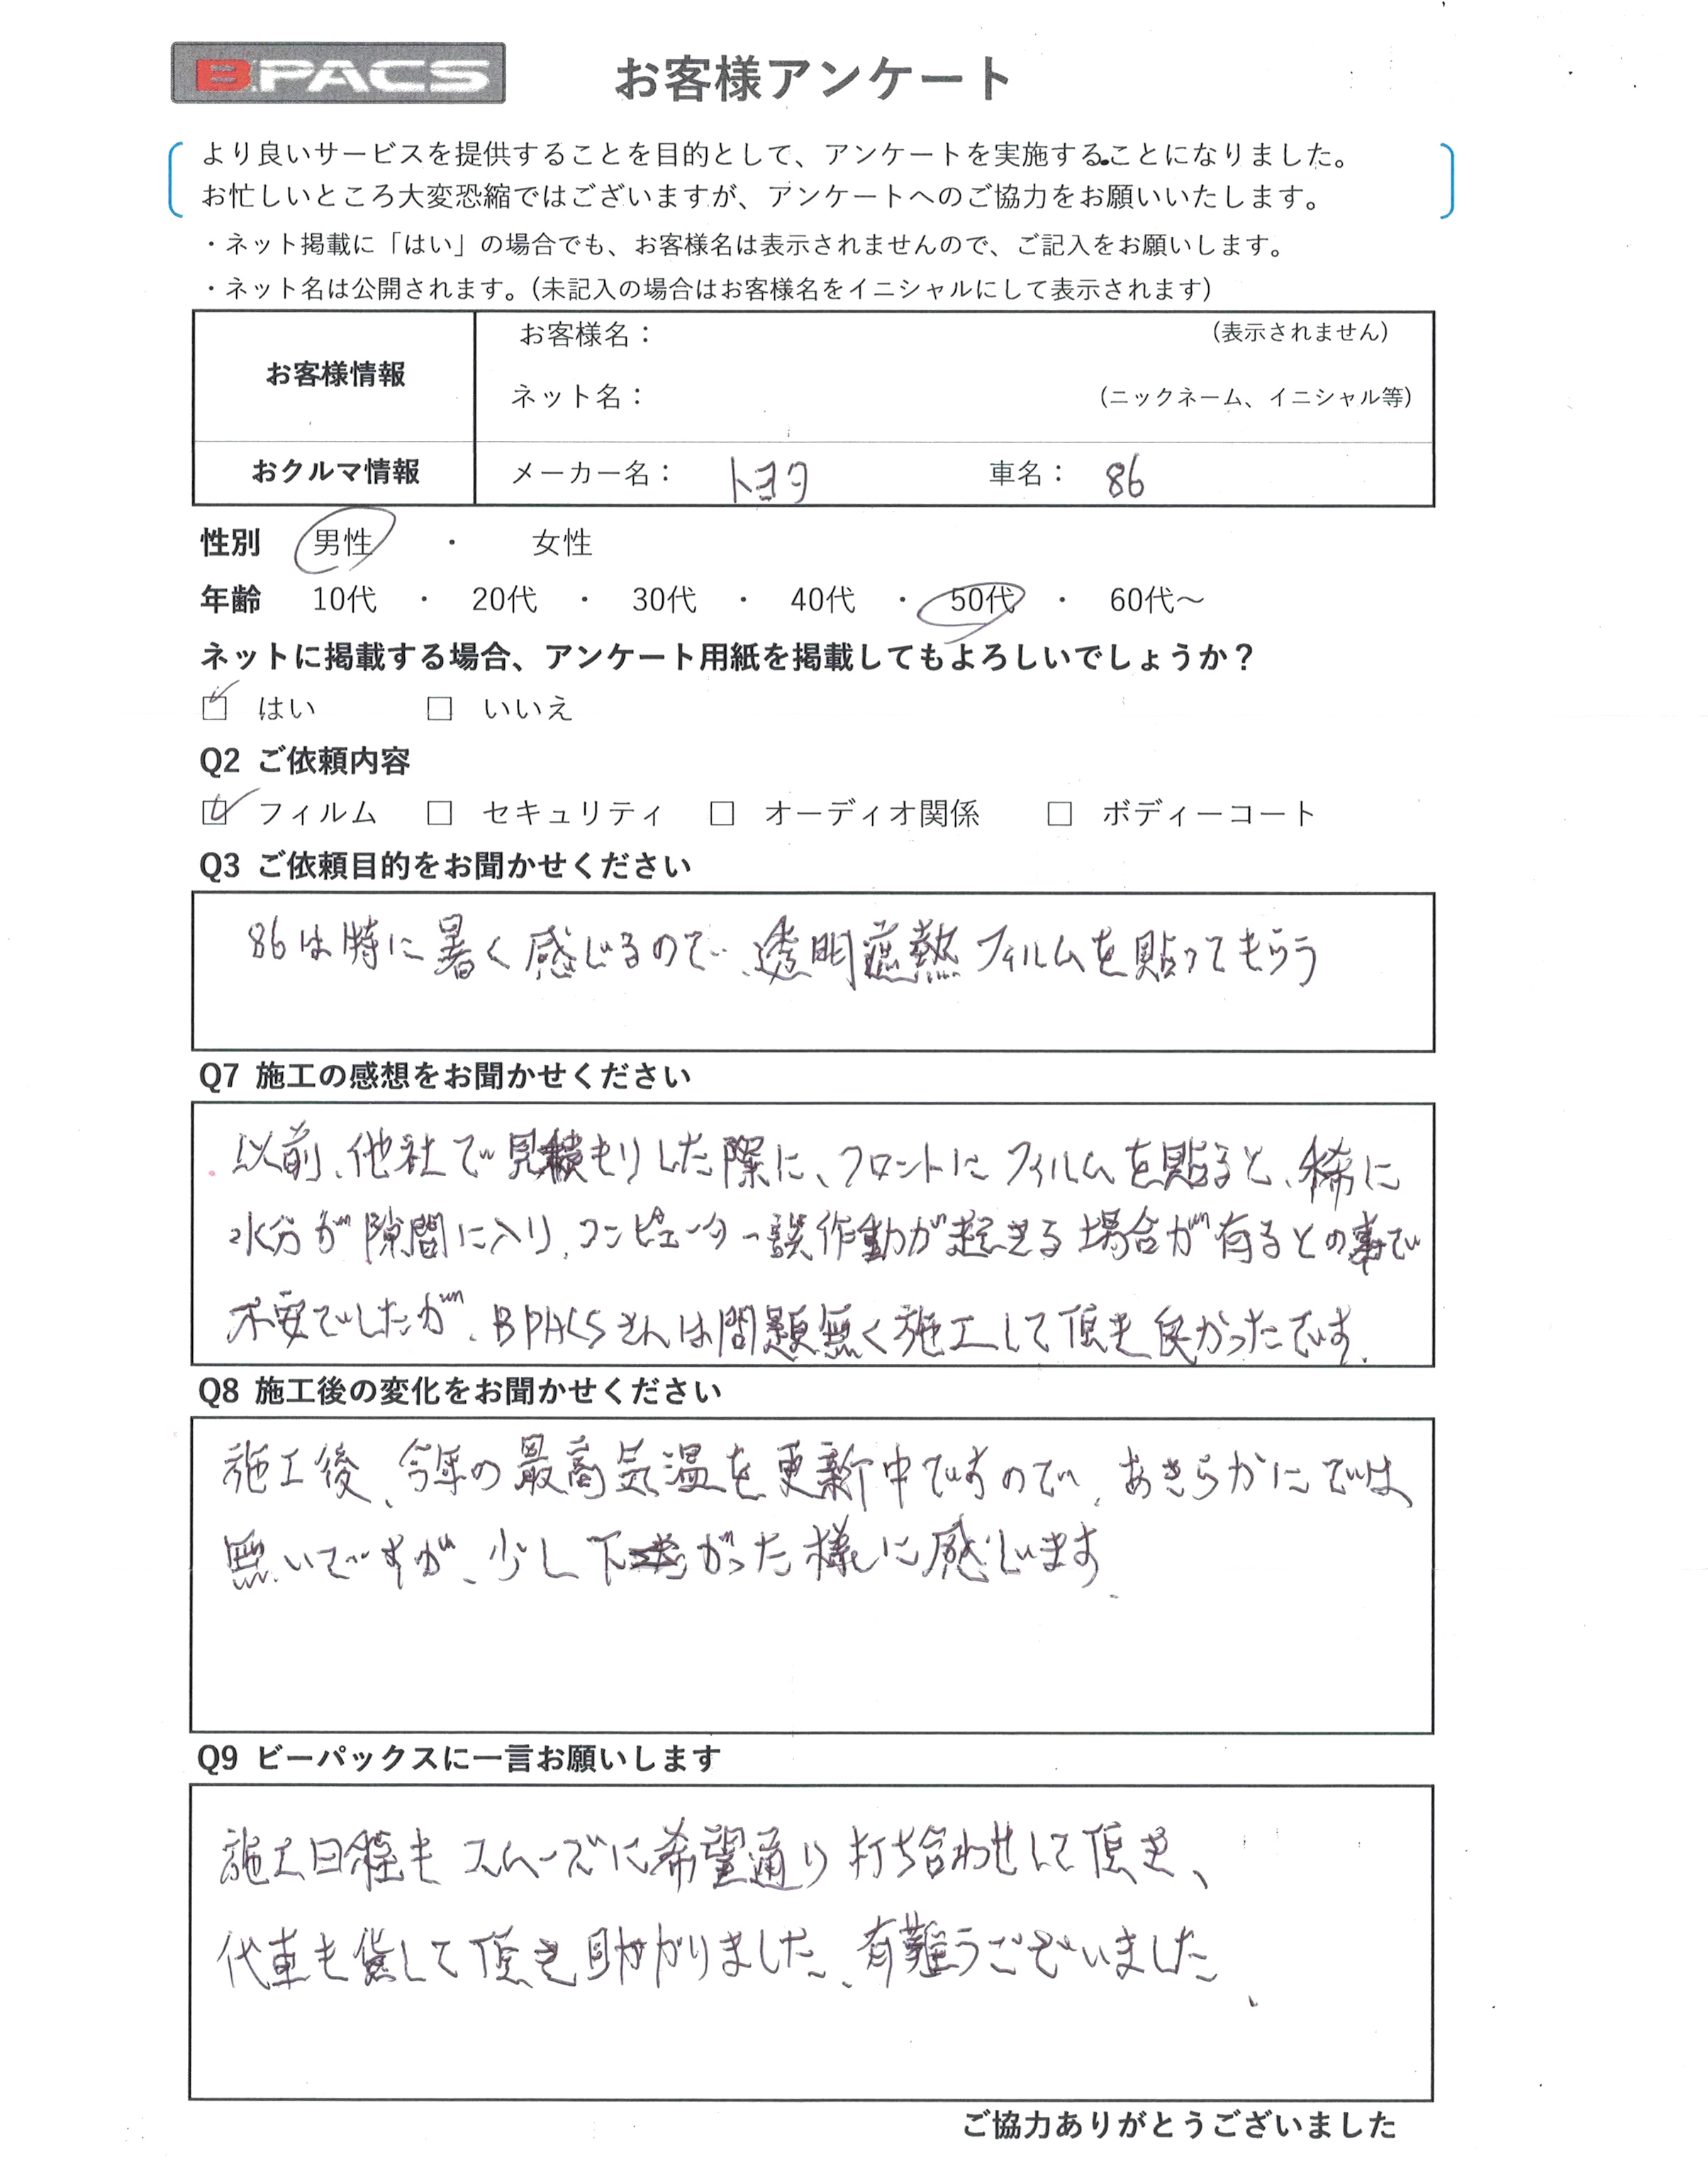 B.PACS お客様アンケート
より良いサービスを提供することを目的として、アンケートを実施することになりました。
お忙しいところ大変恐縮ではございますが、アンケートへのご協力をお願いいたします。
・ネット掲載に「はい」の場合でも、お客様名は表示されませんので、ご記入をお願いします。
・ネット名は公開されます。(未記入の場合はお客様名をイニシャルにして表示されます)
お客様情報
お客様名： (表示されません)
ネット名： (ニックネーム、イニシャル等)
おクルマ情報 メーカー名： トヨタ 車名： 86
性別 男性 ・ 女性
年齢 10代 ・ 20代 ・ 30代 ・ 40代 ・ 50代 ・ 60代～
ネットに掲載する場合、アンケート用紙を掲載してもよろしいでしょうか？
☑ はい □ いいえ
Q2 ご依頼内容
☑ フィルム □ セキュリティ □ オーディオ関係 □ ボディーコート
Q3 ご依頼目的をお聞かせください
86は特に暑く感じるので、透明遮熱フィルムを貼ってもらう
Q7 施工の感想をお聞かせください
以前、他社で見積もりした際に、フロントにフィルムを貼ると、稀に
水分が隙間に入り、コンピューター誤作動が起きる場合が有るとの事で
不安でしたが、BPACSさんは問題無く施工して頂き良かったです。
Q8 施工後の変化をお聞かせください
施工後、今年の最高気温を更新中ですので、あきらかにでは
無いですが、少し下がった様に感じます。
Q9 ビーパックスに一言お願いします
施工日程もスムーズに希望通り打ち合わせして頂き、
代車も貸して頂き助かりました、有難うございました、
ご協力ありがとうございました